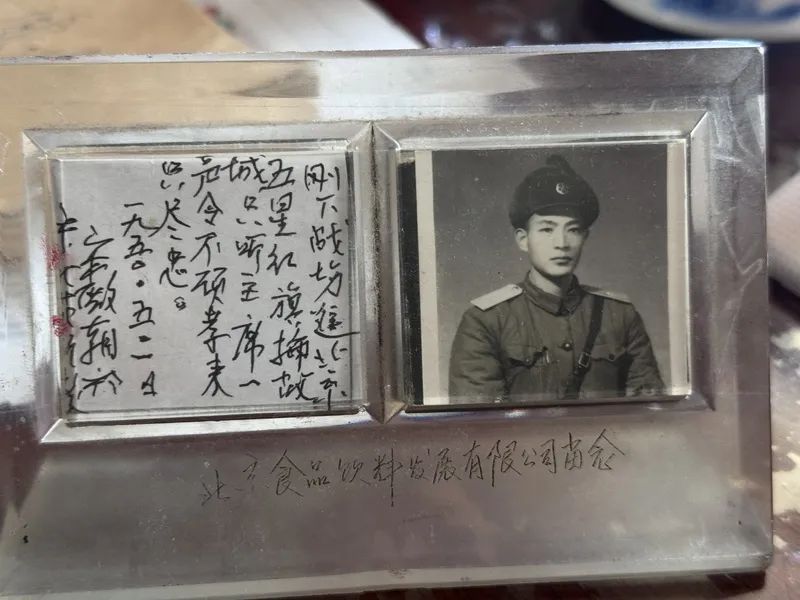 刚下战场进北京
五星红旗插故
城只听主席一
声令不顾孝来
只尽忠。
一九五〇·五二一日
朝於
北京食品饮料发展有限公司留念